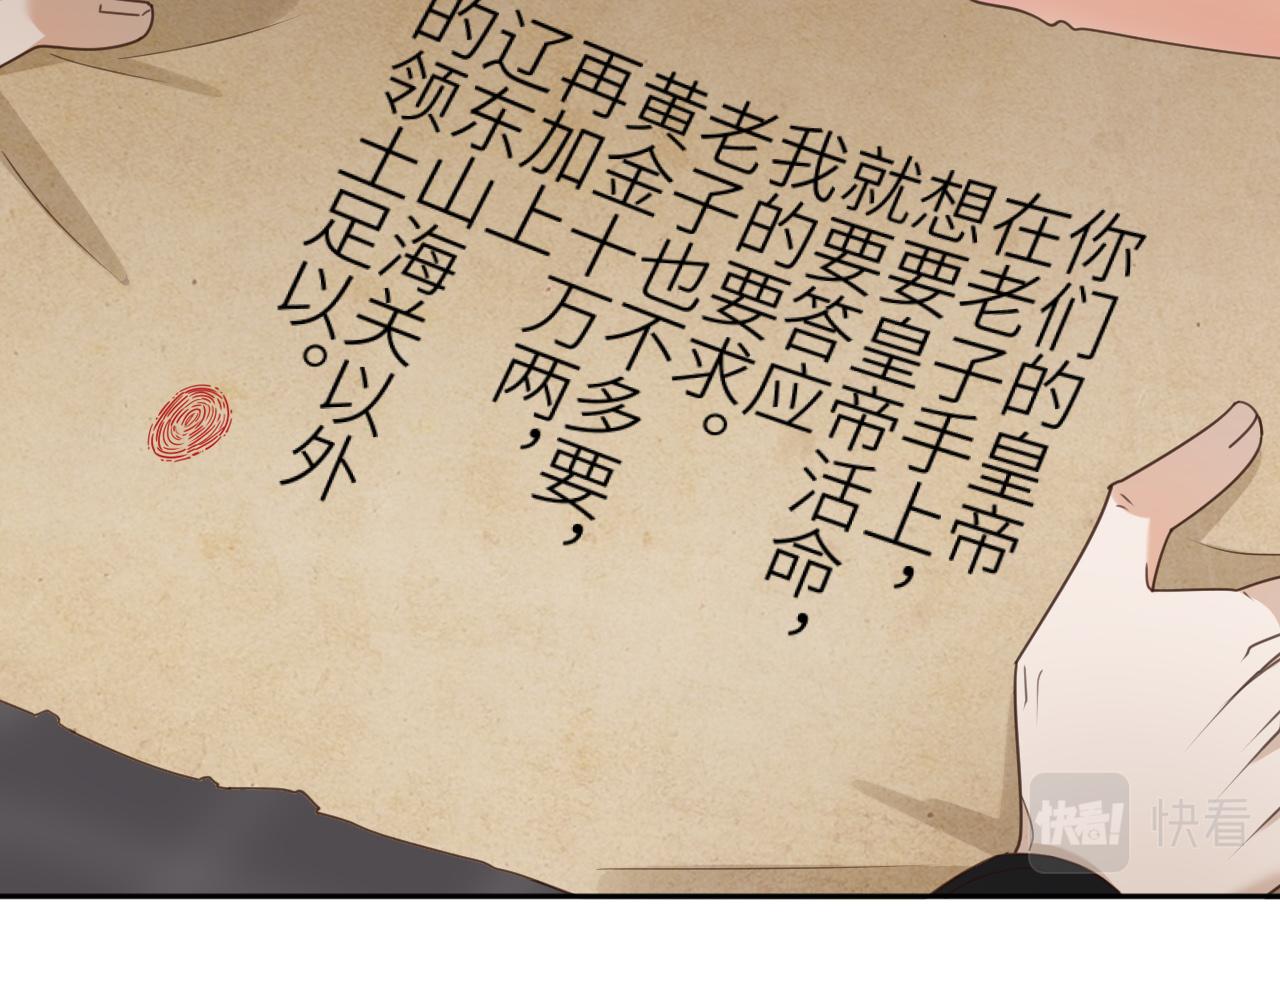 你们的皇帝
在老子手上，
想要皇帝活命，
就要答应
我的要求。
老子也不多要，
黄金十万两，
再加上
辽东山海关以外
的领土足以。
快看!
快看